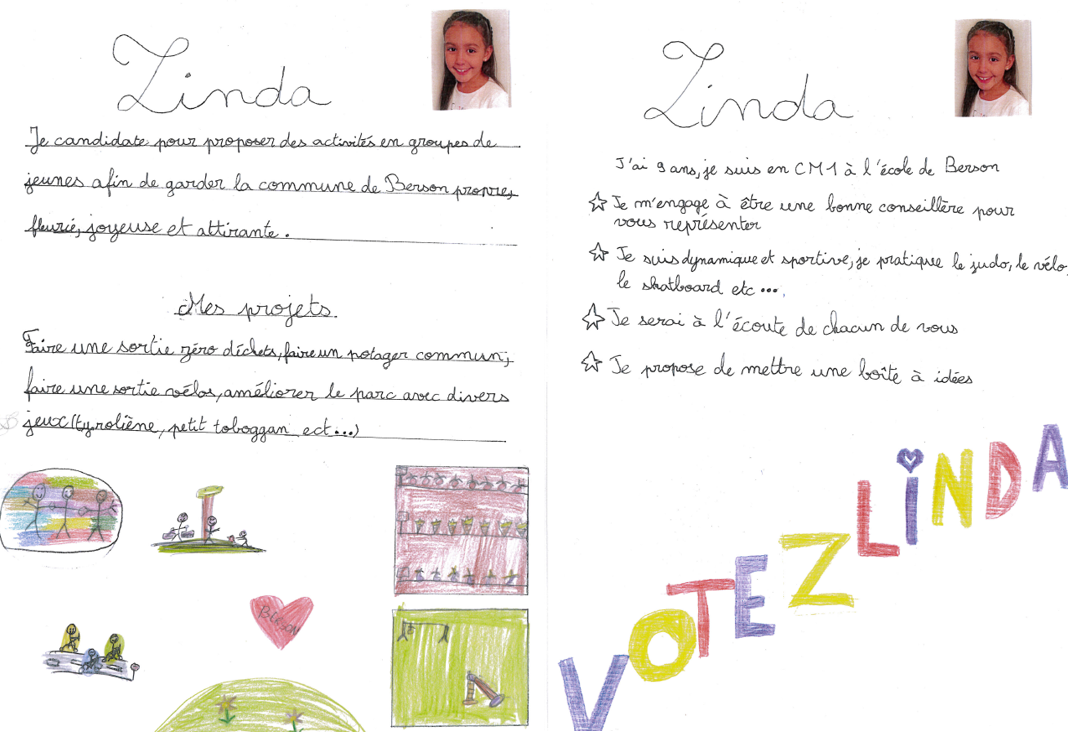 Linda
Je candidate pour proposer des activités en groupes de
jeunes afin de garder la commune de Berson propre,
fleurie, joyeuse et attirante.
Mes projets
Faire une sortie zéro déchets, faire un potager commun,
faire une sortie vélos, améliorer le parc avec divers
jeux (tyroliène, petit toboggan ect...)
BERSON
Linda
J'ai 9 ans, je suis en CM1 à l'école de Berson
Je m'engage à être une bonne conseillère pour
vous représenter
Je suis dynamique et sportive, je pratique le judo, le vélo,
le skatboard etc...
Je serai à l'écoute de chacun de vous
Je propose de mettre une boîte à idées
VOTEZ LiNDA